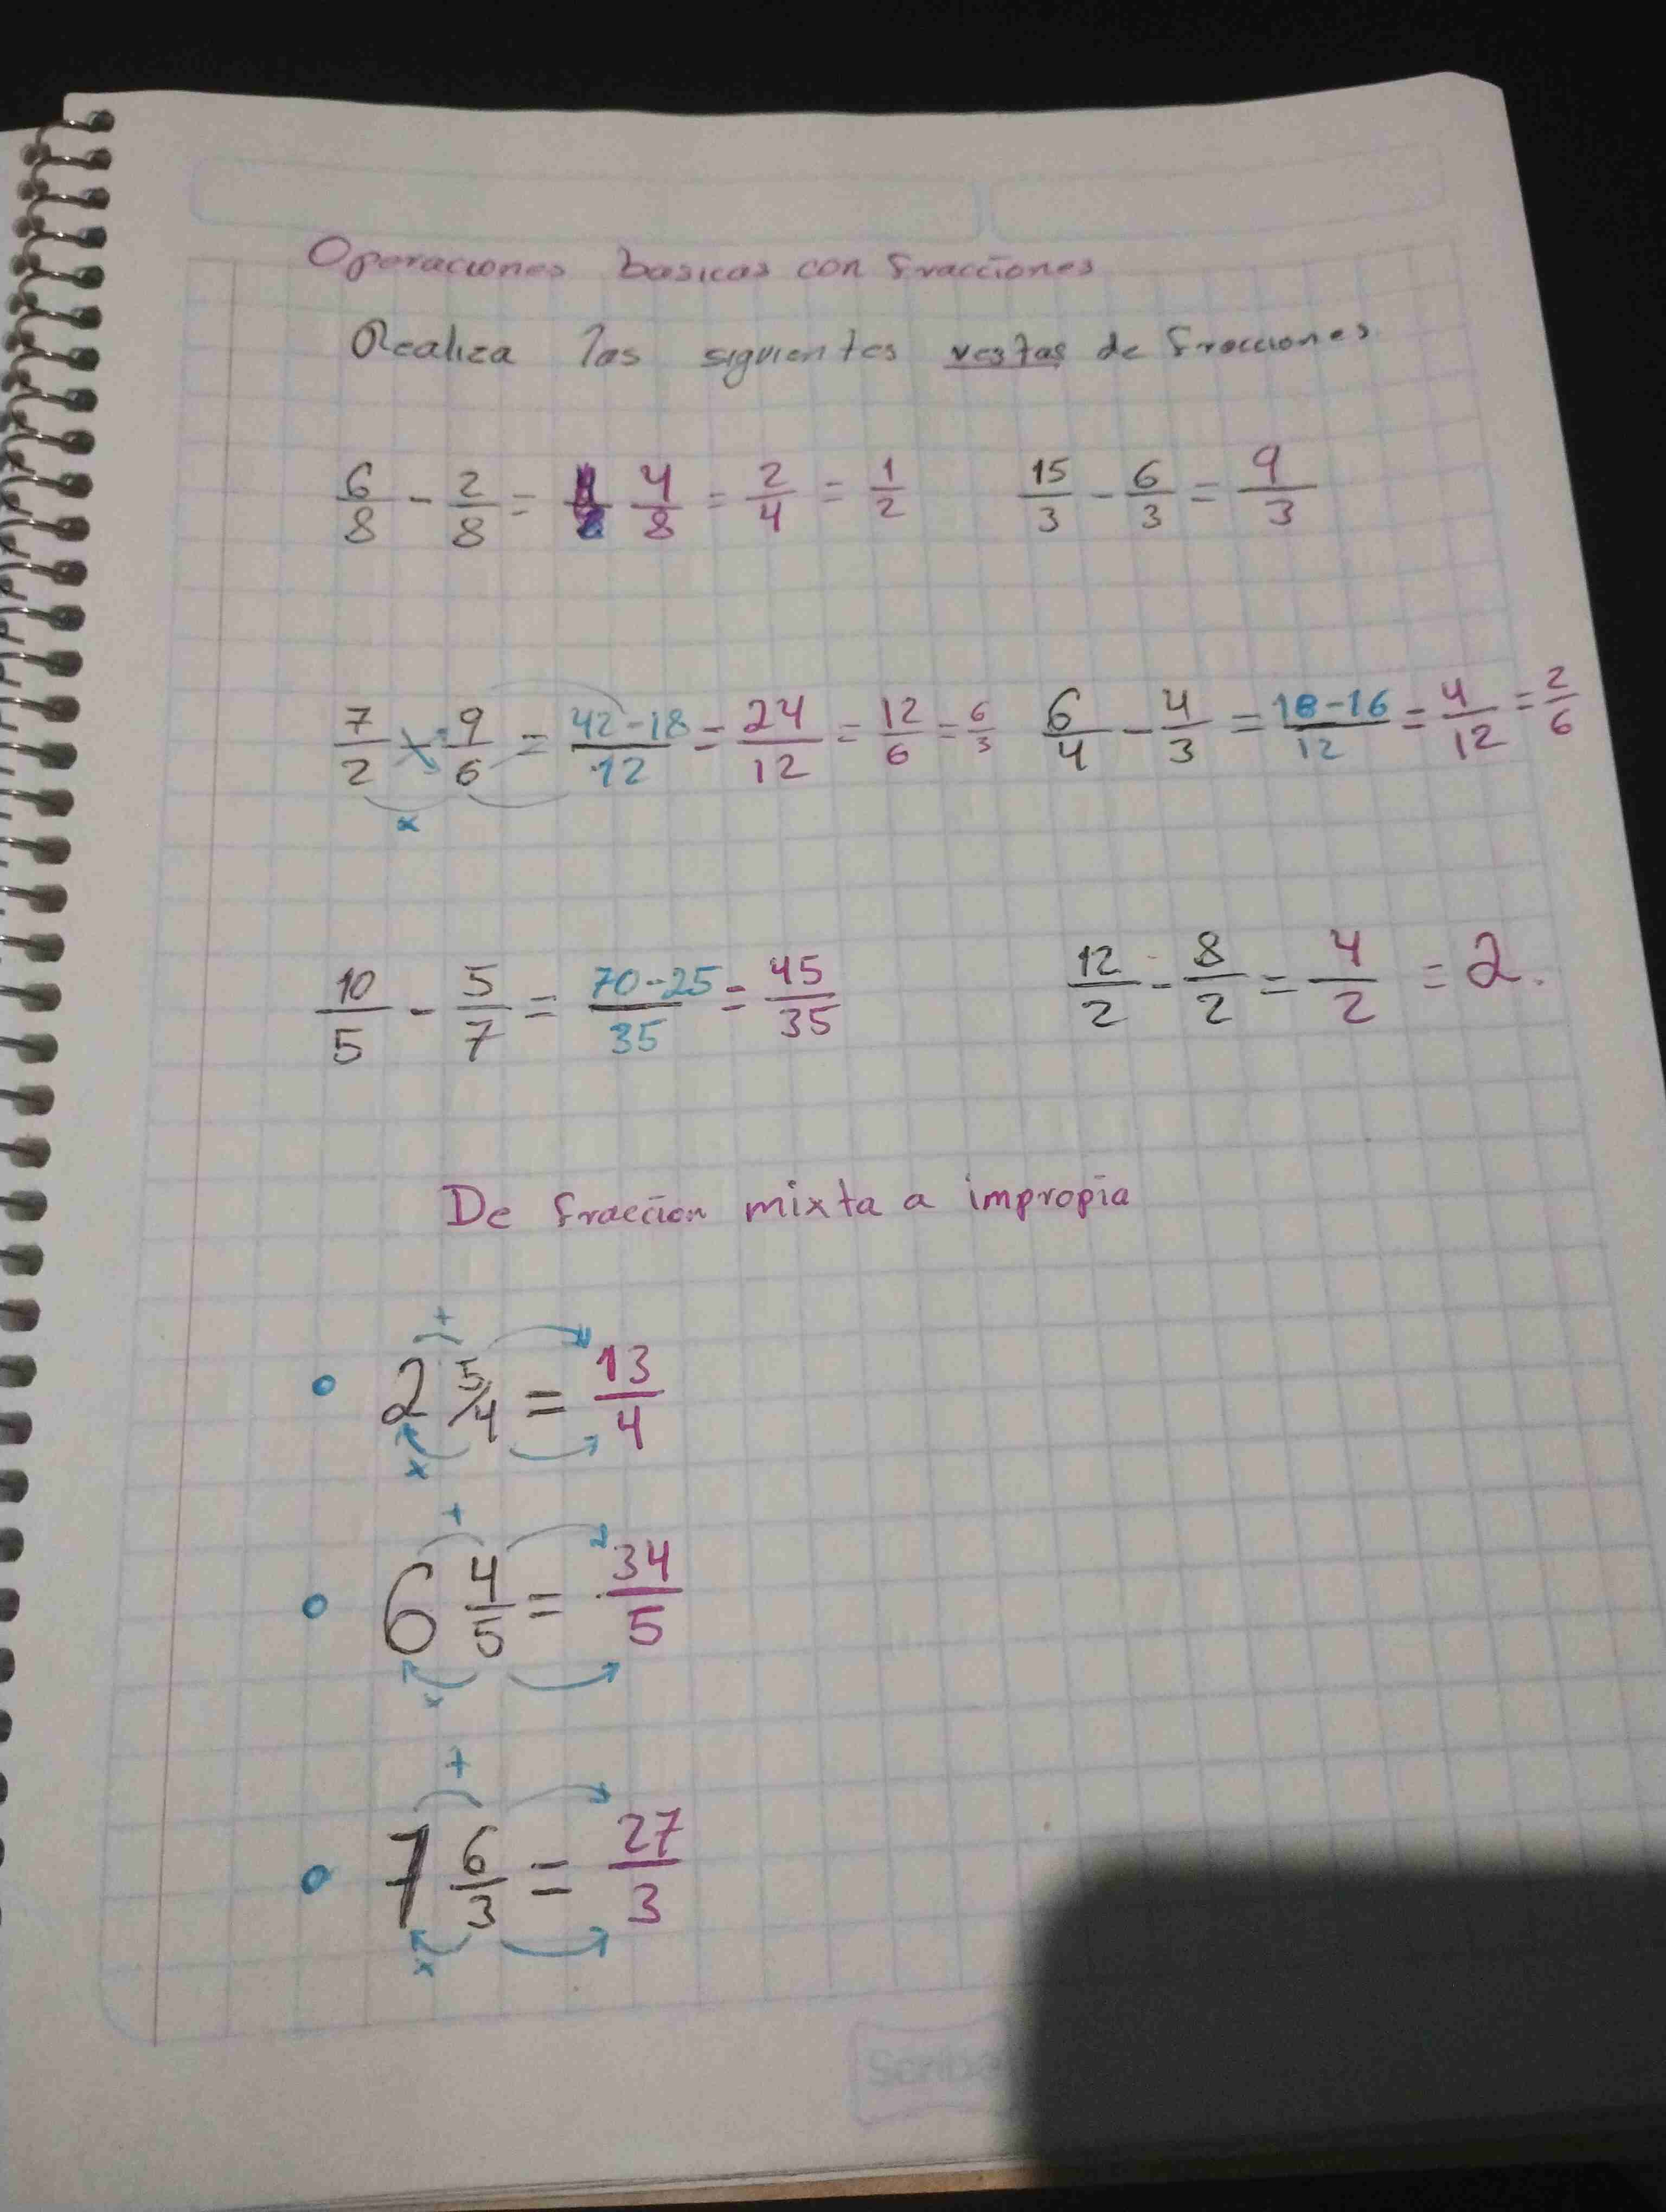 Operaciones basicas con fracciones
Realiza las siguientes restas de fracciones
6/8 - 2/8 = 4/8 = 2/4 = 1/2    15/3 - 6/3 = 9/3
7/2 - 9/6 = 42-18/12 = 24/12 = 12/6 = 6/3    6/4 - 4/3 = 18-16/12 = 4/12 = 2/6
x
10/5 - 5/7 = 70-25/35 = 45/35    12/2 - 8/2 = 4/2 = 2.
De fraccion mixta a impropia
+
2 5/4 = 13/4
x
+
6 4/5 = 34/5
x
+
7 6/3 = 27/3
x
Scribe